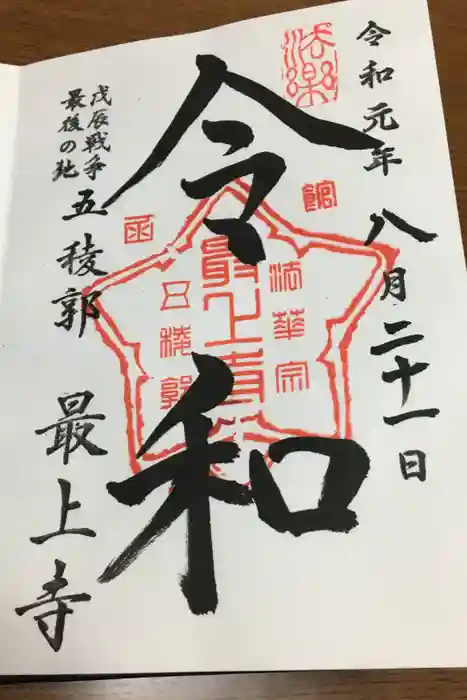 令和元年八月二十一日
法樂
令和
函館
法華宗
最上寺
五稜郭
戊辰戦争
最後の地
五稜郭
最上寺